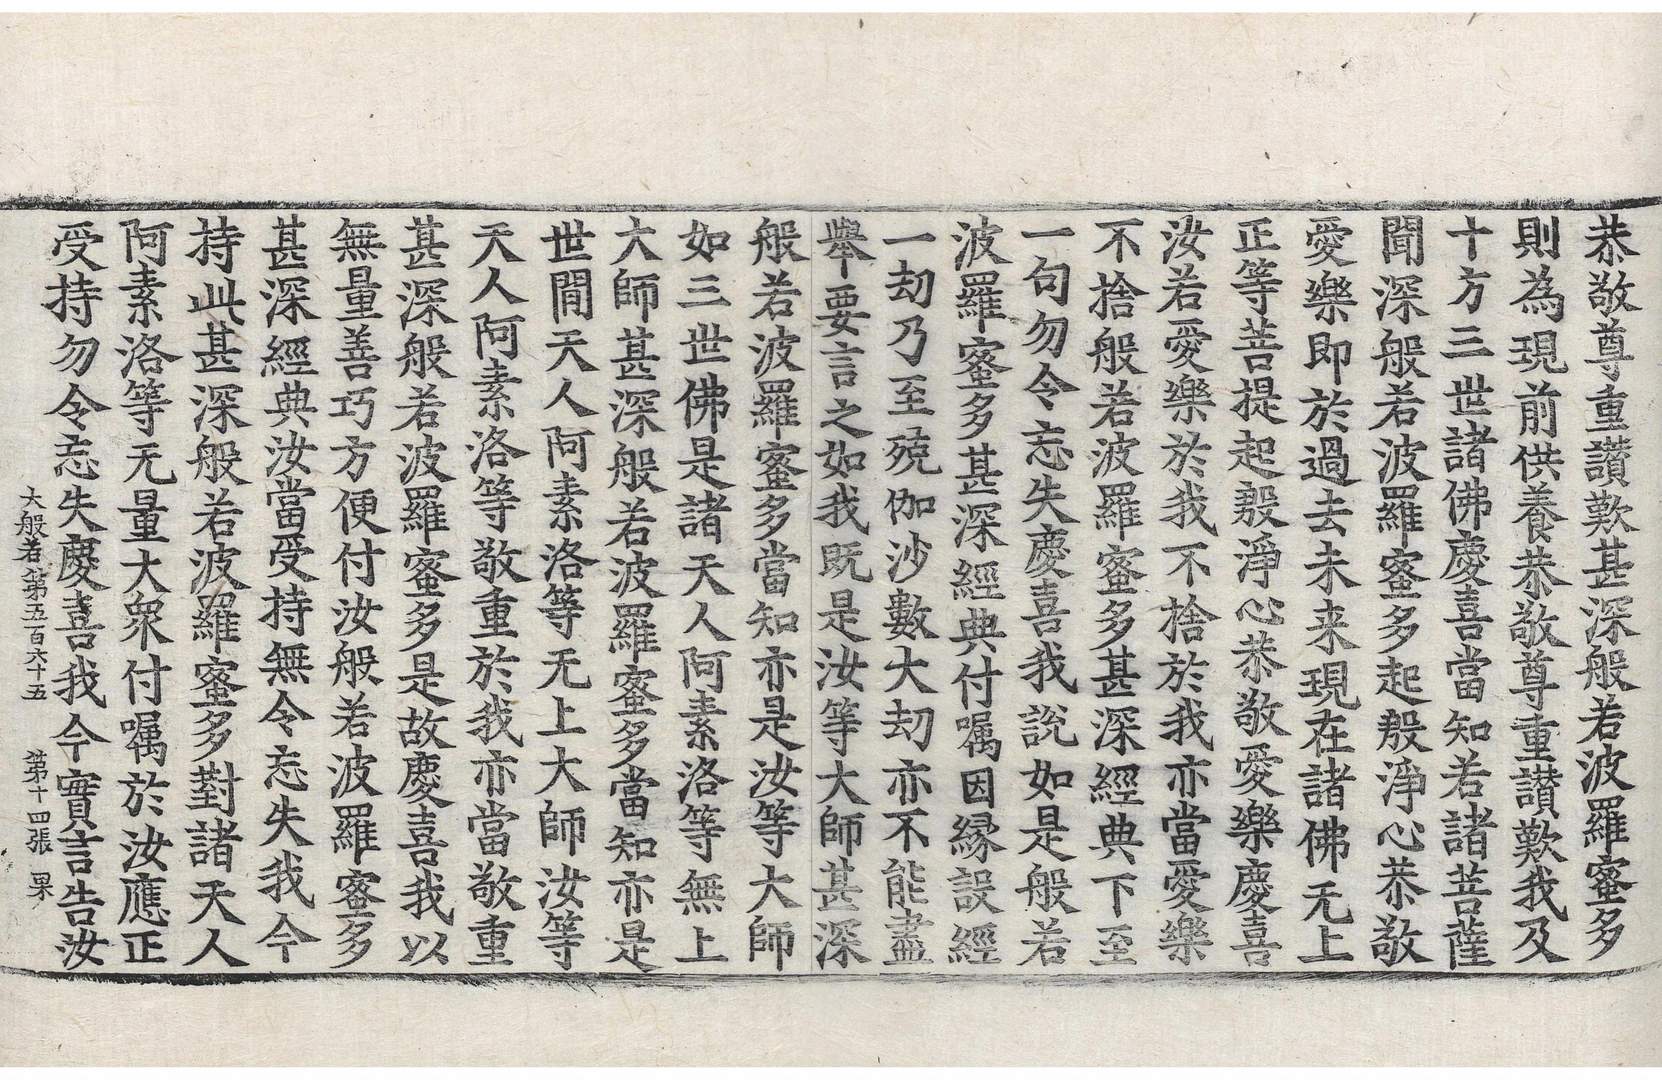 恭敬尊重讃歎甚深般若波羅蜜多
則為現前供養恭敬尊重讃歎我及
十方三世諸佛慶喜當知若諸菩薩
聞深般若波羅蜜多起殷淨心恭敬
愛樂即於過去未来現在諸佛无上
正等菩提起殷淨心恭敬愛樂慶喜
汝若愛樂於我不捨於我亦當愛樂
不捨般若波羅蜜多甚深經典下至
一句勿令忘失慶喜我說如是般若
波羅蜜多甚深經典付嘱因縁設經
一劫乃至殑伽沙數大劫亦不能盡
舉要言之如我既是汝等大師甚深
般若波羅蜜多當知亦是汝等大師
如三世佛是諸天人阿素洛等無上
大師甚深般若波羅蜜多當知亦是
世間天人阿素洛等无上大師汝等
天人阿素洛等敬重於我亦當敬重
甚深般若波羅蜜多是故慶喜我以
無量善巧方便付汝般若波羅蜜多
甚深經典汝當受持無令忘失我今
持此甚深般若波羅蜜多對諸天人
阿素洛等无量大衆付嘱於汝應正
受持勿令忘失慶喜我今實言告汝
大般若第五百六十五 第十四張 果